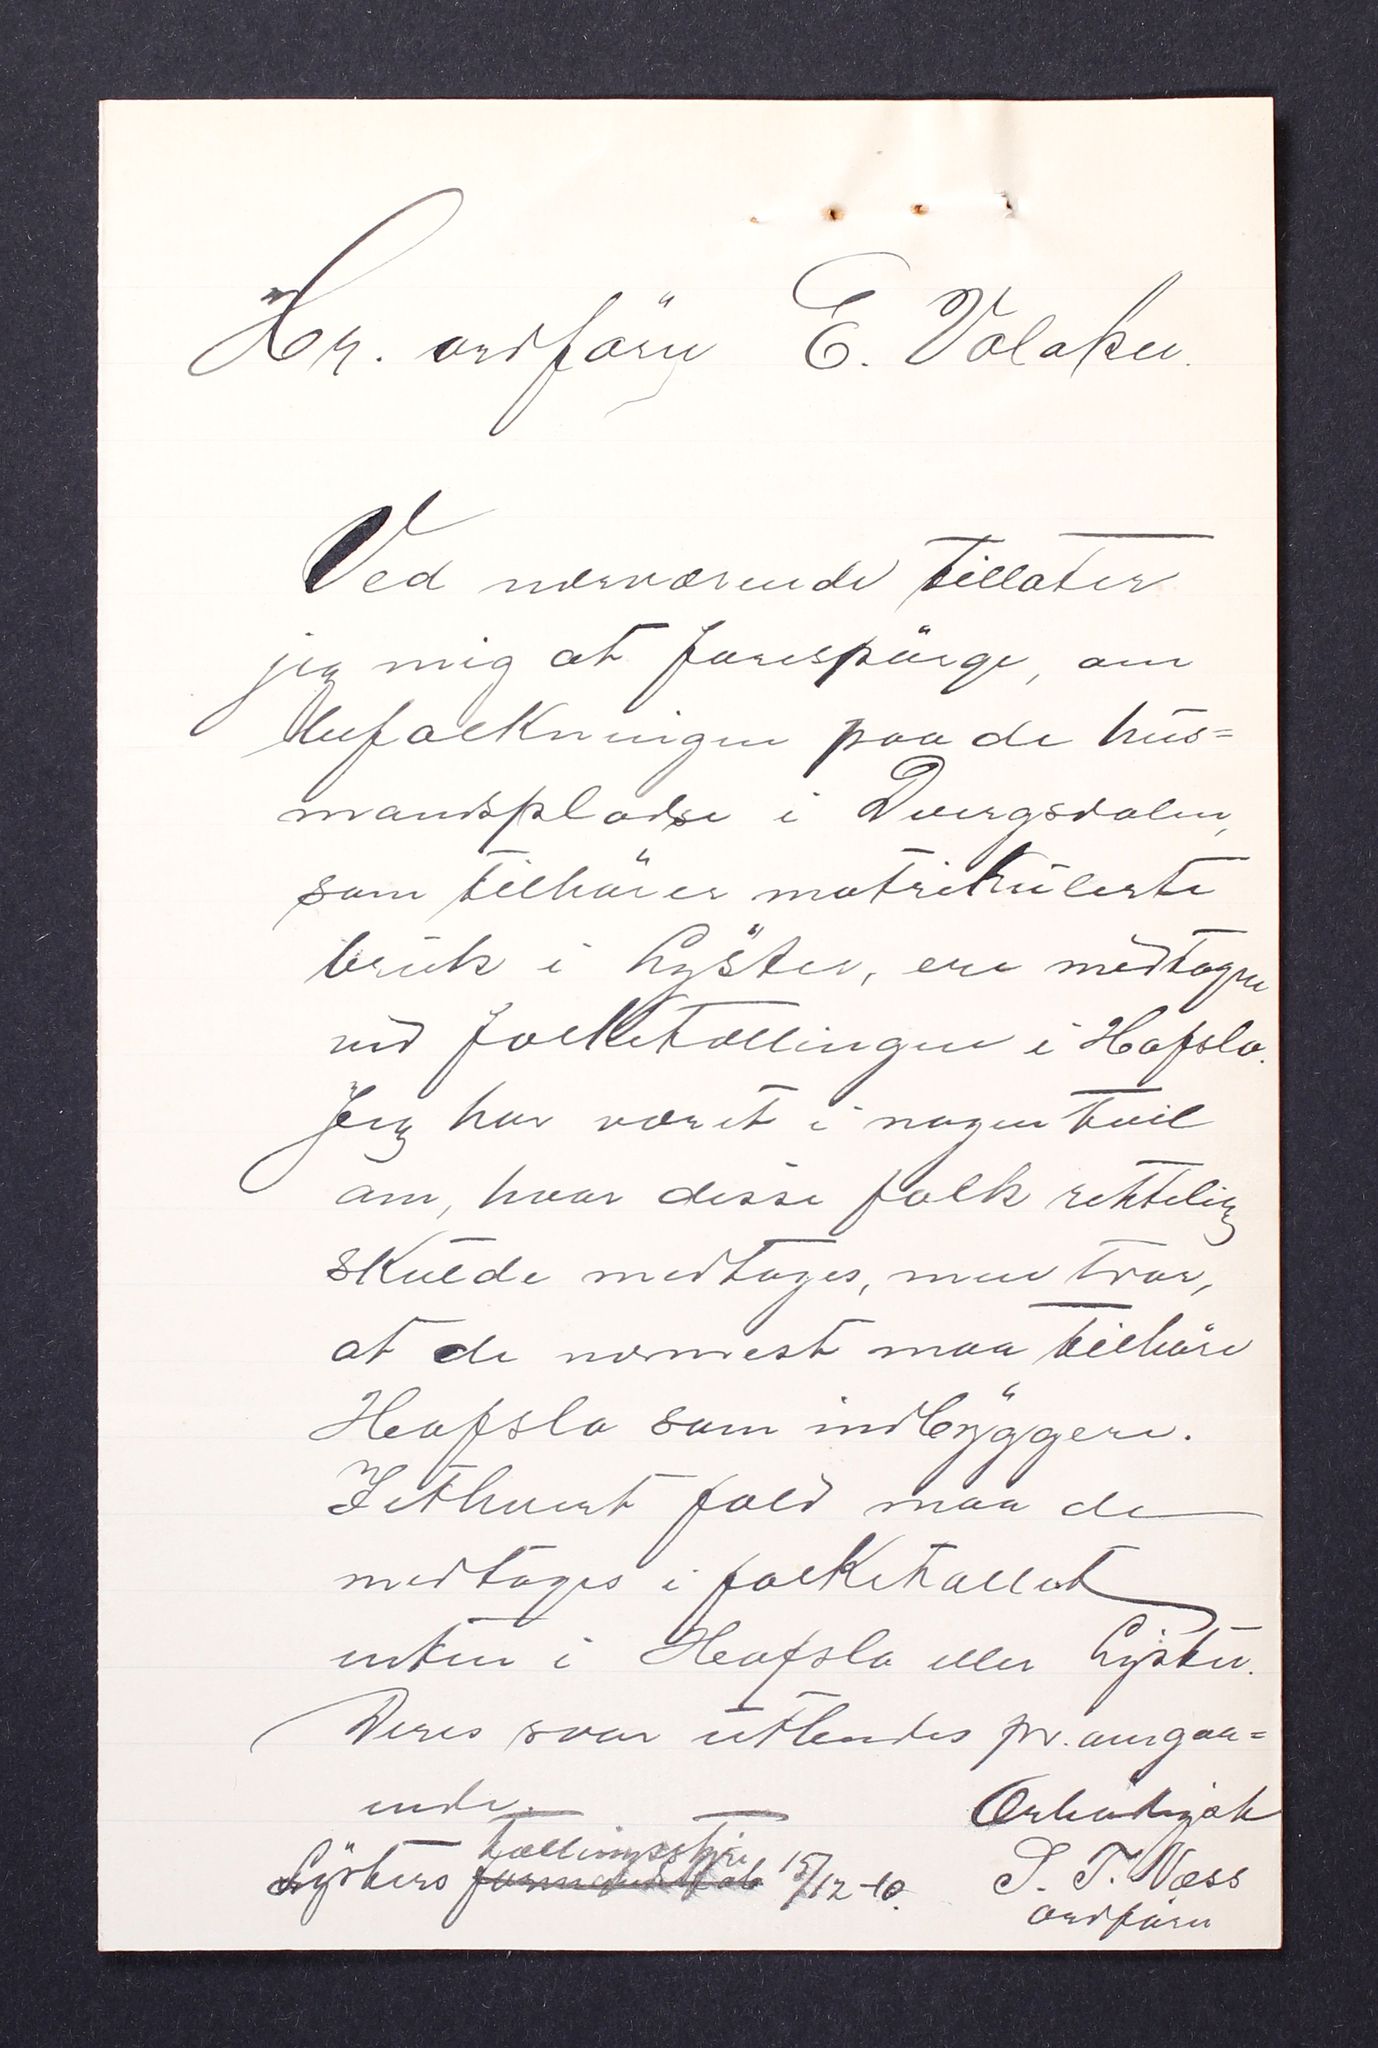 Hr. ordförer E. Volaker.
Ved nærværende tillater
jeg mig at forespörge, om
befolkningen paa de hus=
mandsplodse i Dvergsdalen,
som tilhörer matrikulerte
bruk i Lyster, ere medtagne
ved folketællingen i Hafslo.
Jeg har været i nogen tvil
om, hvor disse folk rettelig
skulde medtages, men tror,
at de nærmest maa tilhöre
Hafslo som indbyggere.
Iethvert fald maa de
medtages i folketallet
enten i Hafslo eller Lyster.
Deres svar utbedes pr. omgaa=
ende.
Ærbödigst
Lysters formandskab tællingsstyre 15/12-10.
S. T. Næss
ordförer